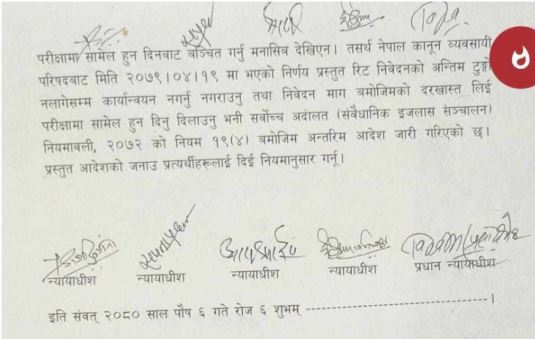 परीक्षामा सामेल हुन दिनबाट बञ्चित गर्नु मनासिव देखिएन। तसर्थ नेपाल कानून व्यवसायी
परिषदबाट मिति २०७९।०४।१९ मा भएको निर्णय प्रस्तुत रिट निवेदनको अन्तिम टुङ्गो
नलागेसम्म कार्यान्वयन नगर्नु नगराउनु तथा निवेदन माग बमोजिमको दरखास्त लिई
परीक्षामा सामेल हुन दिनु दिलाउनु भनी सर्वोच्च अदालत (संवैधानिक इजलास सञ्चालन)
नियमावली, २०७२ को नियम १९(४) बमोजिम अन्तरिम आदेश जारी गरिएको छ।
प्रस्तुत आदेशको जनाउ प्रत्यर्थीहरूलाई दिई नियमानुसार गर्नू।
न्यायाधीश न्यायाधीश न्यायाधीश न्यायाधीश प्रधान न्यायाधीश
इति संवत् २०८० साल पौष ६ गते रोज ६ शुभम् ---------------------------।